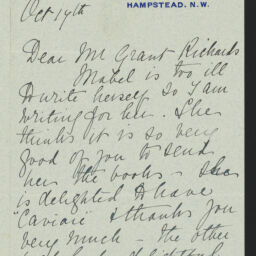 HAMPSTEAD, N.W.
Oct 19th
Dear Mr Grant Richards
Mabel is too ill
to write herself so I am
writing for her. She
thinks it is so very
good of you to send
her the books – she
is delighted to have
"Caviare" & thanks you
very much – the other